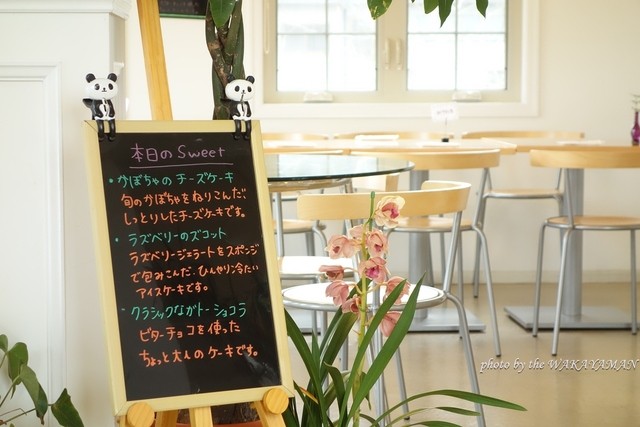 本日のSweet
・かぼちゃのチーズケーキ
旬のかぼちゃをねりこんだ、
しっとりしたチーズケーキです。
・ラズベリーのズコット
ラズベリージェラートをスポンジ
で包みこんだ、ひんやり冷たい
アイスケーキです。
・クラシックなガトーショコラ
ビターチョコを使った
ちょっと大人のケーキです。
photo by the WAKAYAMAN